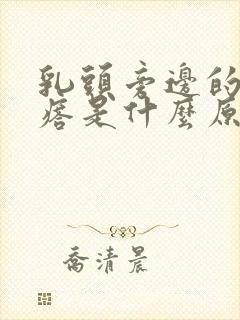 乳頭旁邊的
痞是什麼原
喬清晨